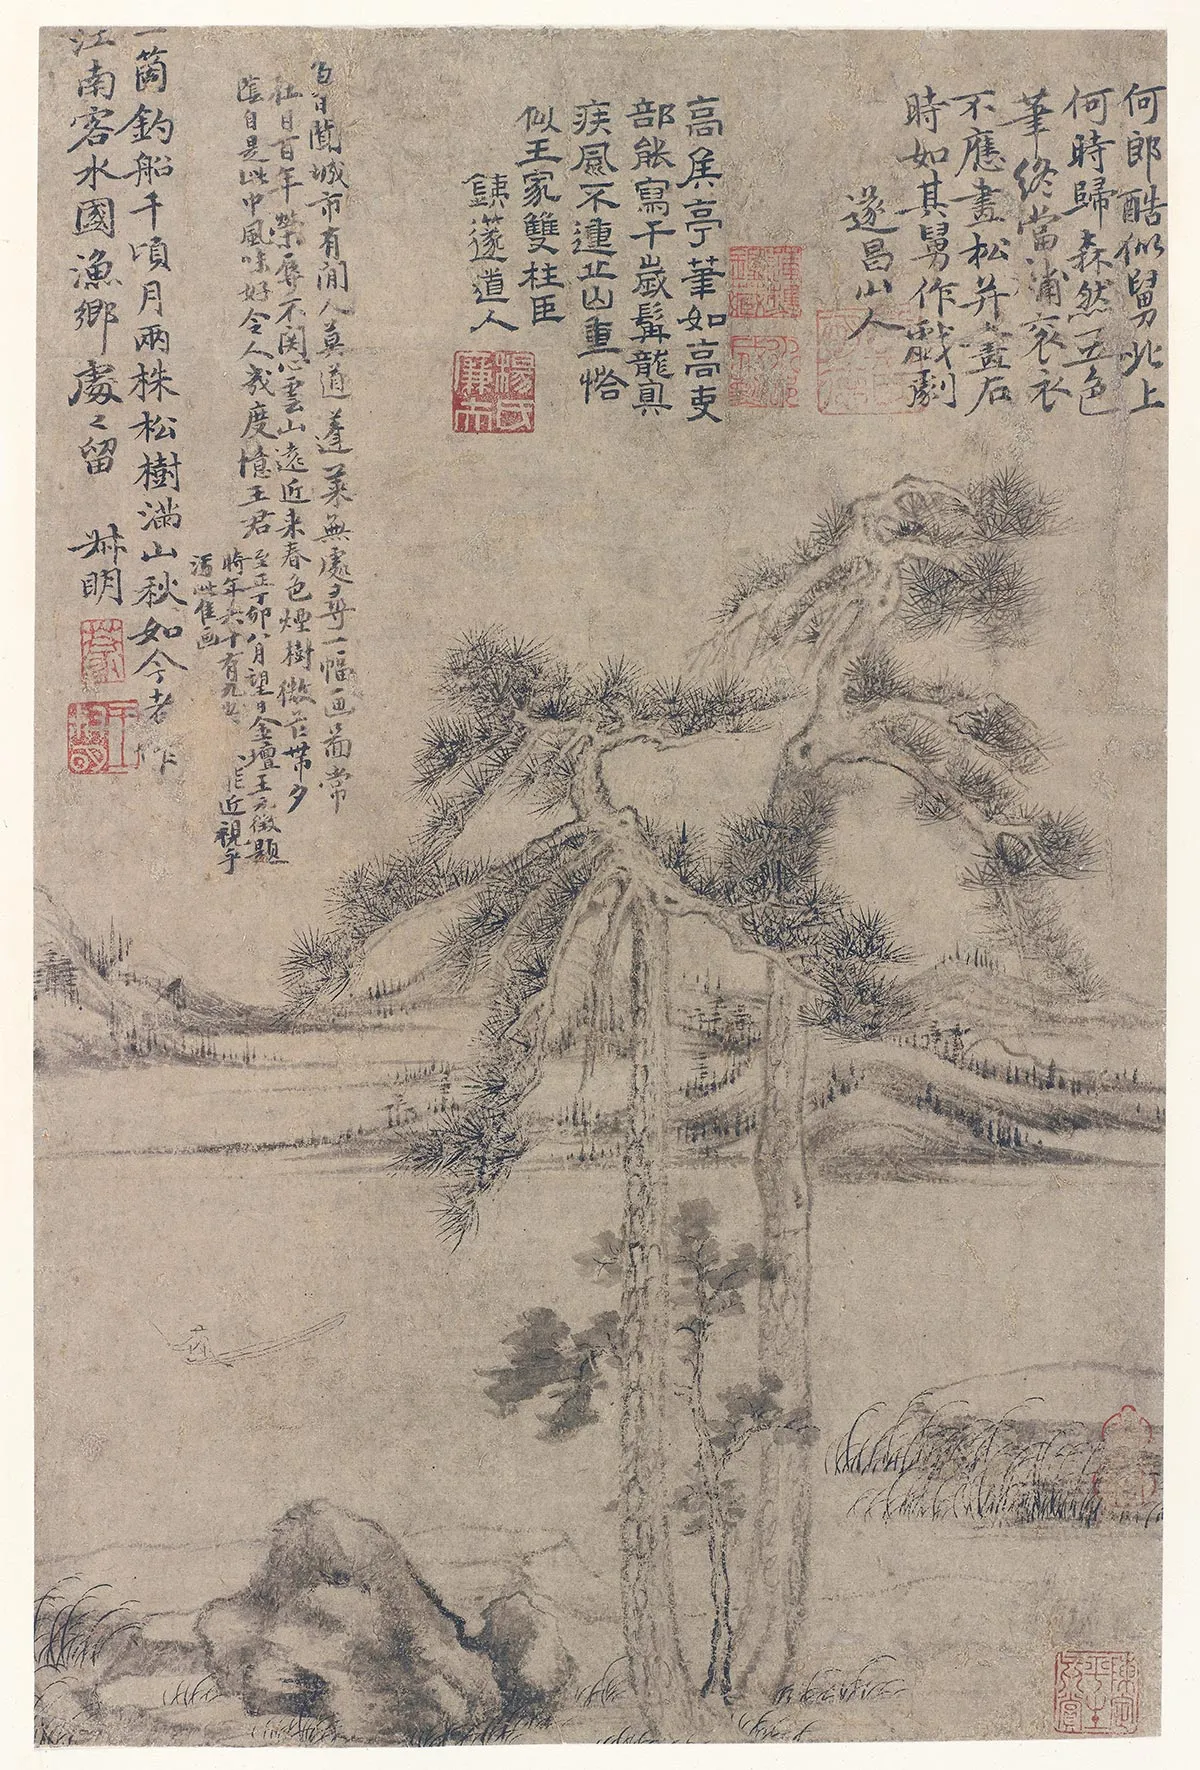 何郎酷似舅北上
何時歸森然五色
筆終當補袞衣
不應畫松并畫石
時如其舅作戲劇
遂昌山人
高侯亭筆如高吏
部能寫千歲髯龍真
疾風不山重恰
似王家雙柱臣
銕篴道人
廉夫
日城市有閒人莫道蓬萊無處尋一幅画啚常
在日百年榮辱不関心雲山遠近来春色煙樹微茫帶夕
陰自是此中風味好令人幾度憶王君
至正丁卯八月望日金壇王元徵題
時年六十有九
近視乎
一箇釣船千頃月兩株松樹滿山秋如今老作
江南客水國漁鄉處々留
叔明